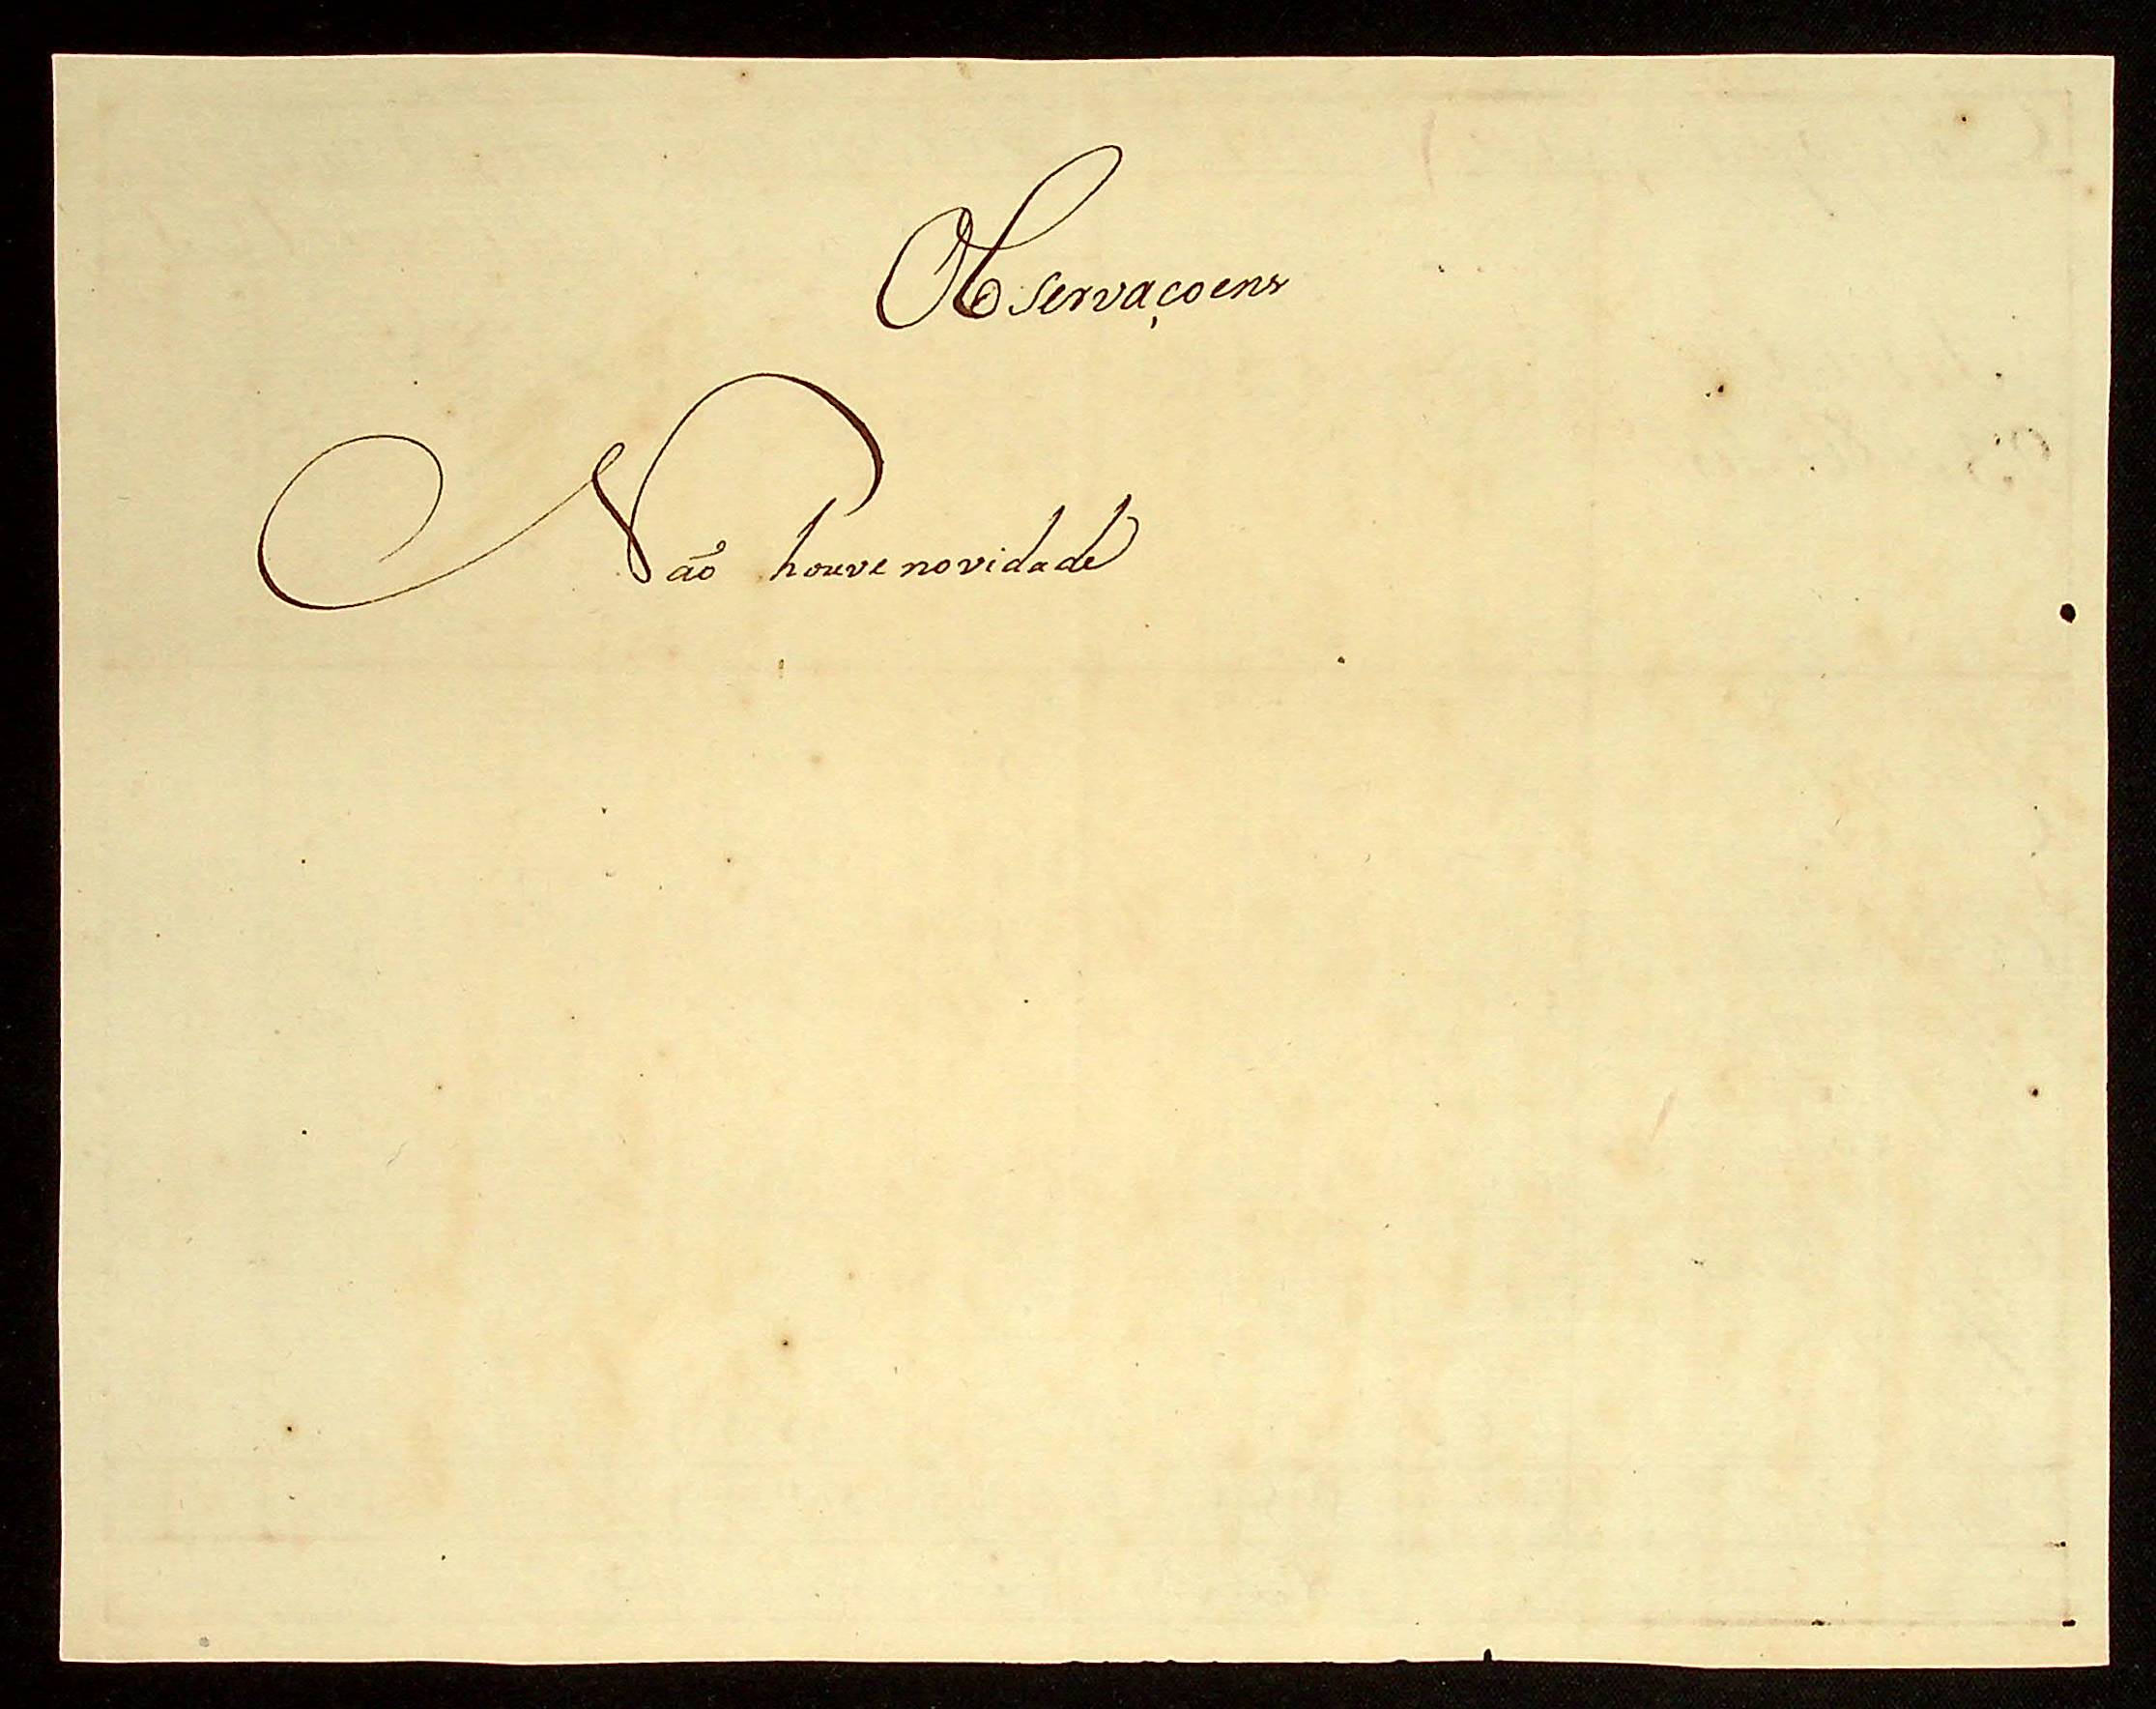 Observaçoens
Não houve novidade